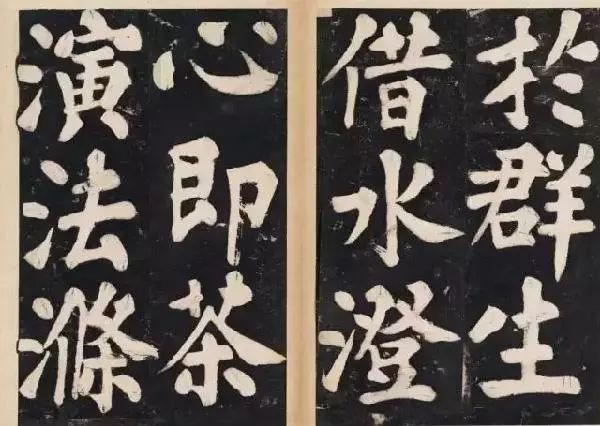 於群生
借水澄
心即茶
演法滌